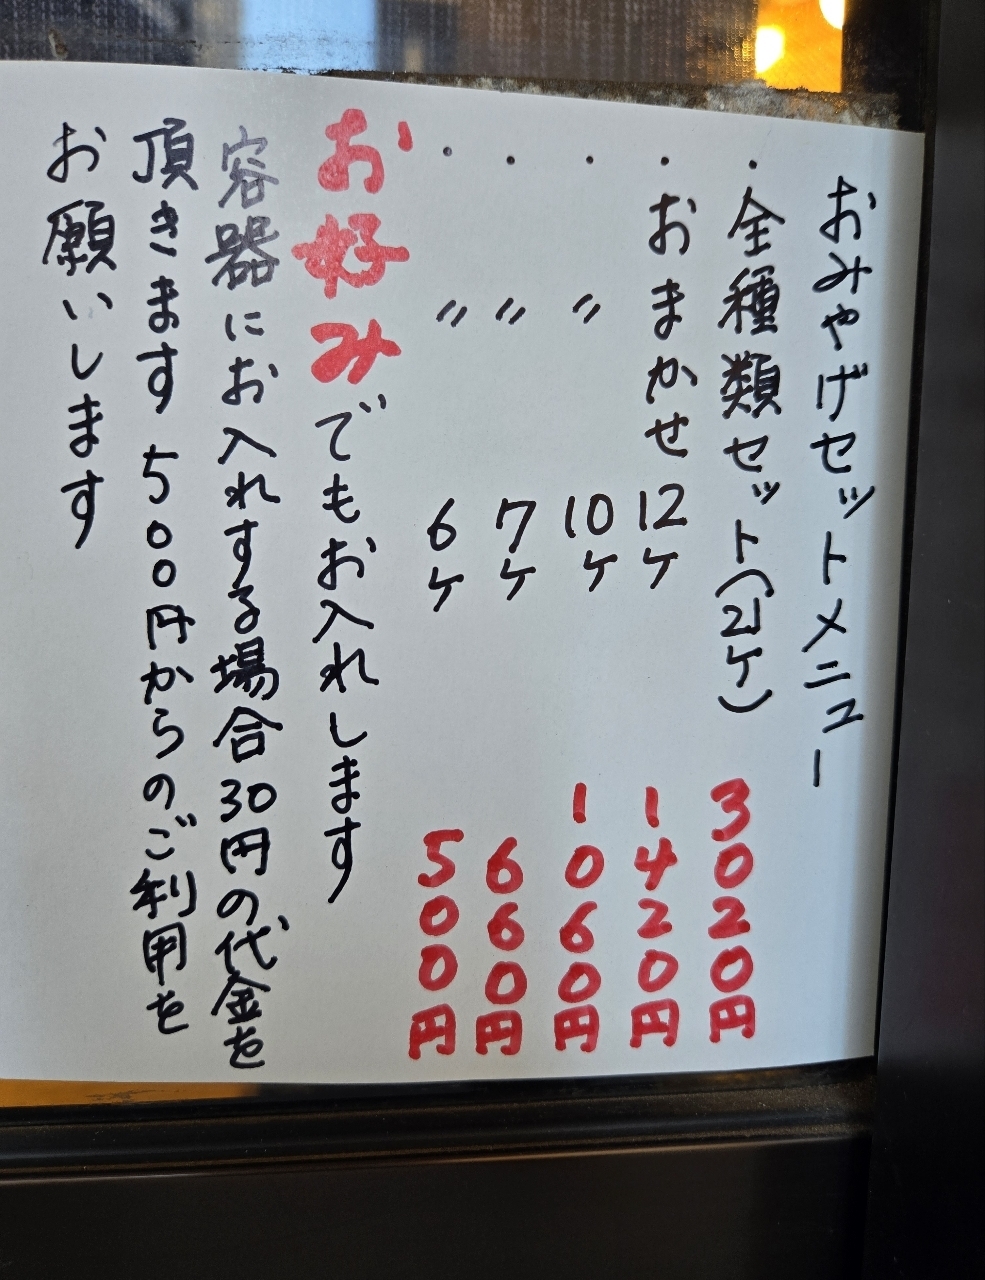 おみやげセットメニュー
・全種類セット(21ケ) 3020円
・おまかせ 12ケ 1420円
・〃 10ケ 1060円
・〃 7ケ 660円
・〃 6ケ 500円
お好みでもお入れします
容器にお入れする場合30円の代金を
頂きます 500円からのご利用を
お願いします